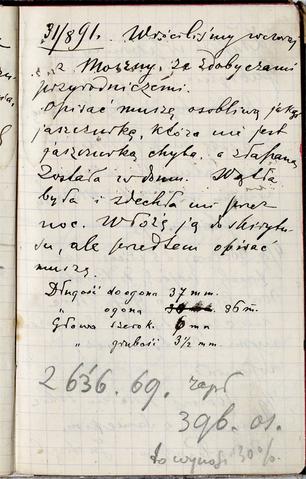 31/8 91. Wróciliśmy wczoraj
z Moszny, ze zdobyczami
przyrodniczemi.
Opisać muszę osobliwą jakąś
jaszczurkę, która nie jest
jaszczurką chyba, a złapaną
została w domu. Wątła
była i zdechła mi przez
noc. Włożę ją do skrytu-
su, ale przedtem opisać
muszę.
Długość do ogona 37 mm.
" ogona 36 m.
Głowa szerok. 6 mm
" grubość 3½ mm.
2636. 69.
396. os.
to wynosi 30%.